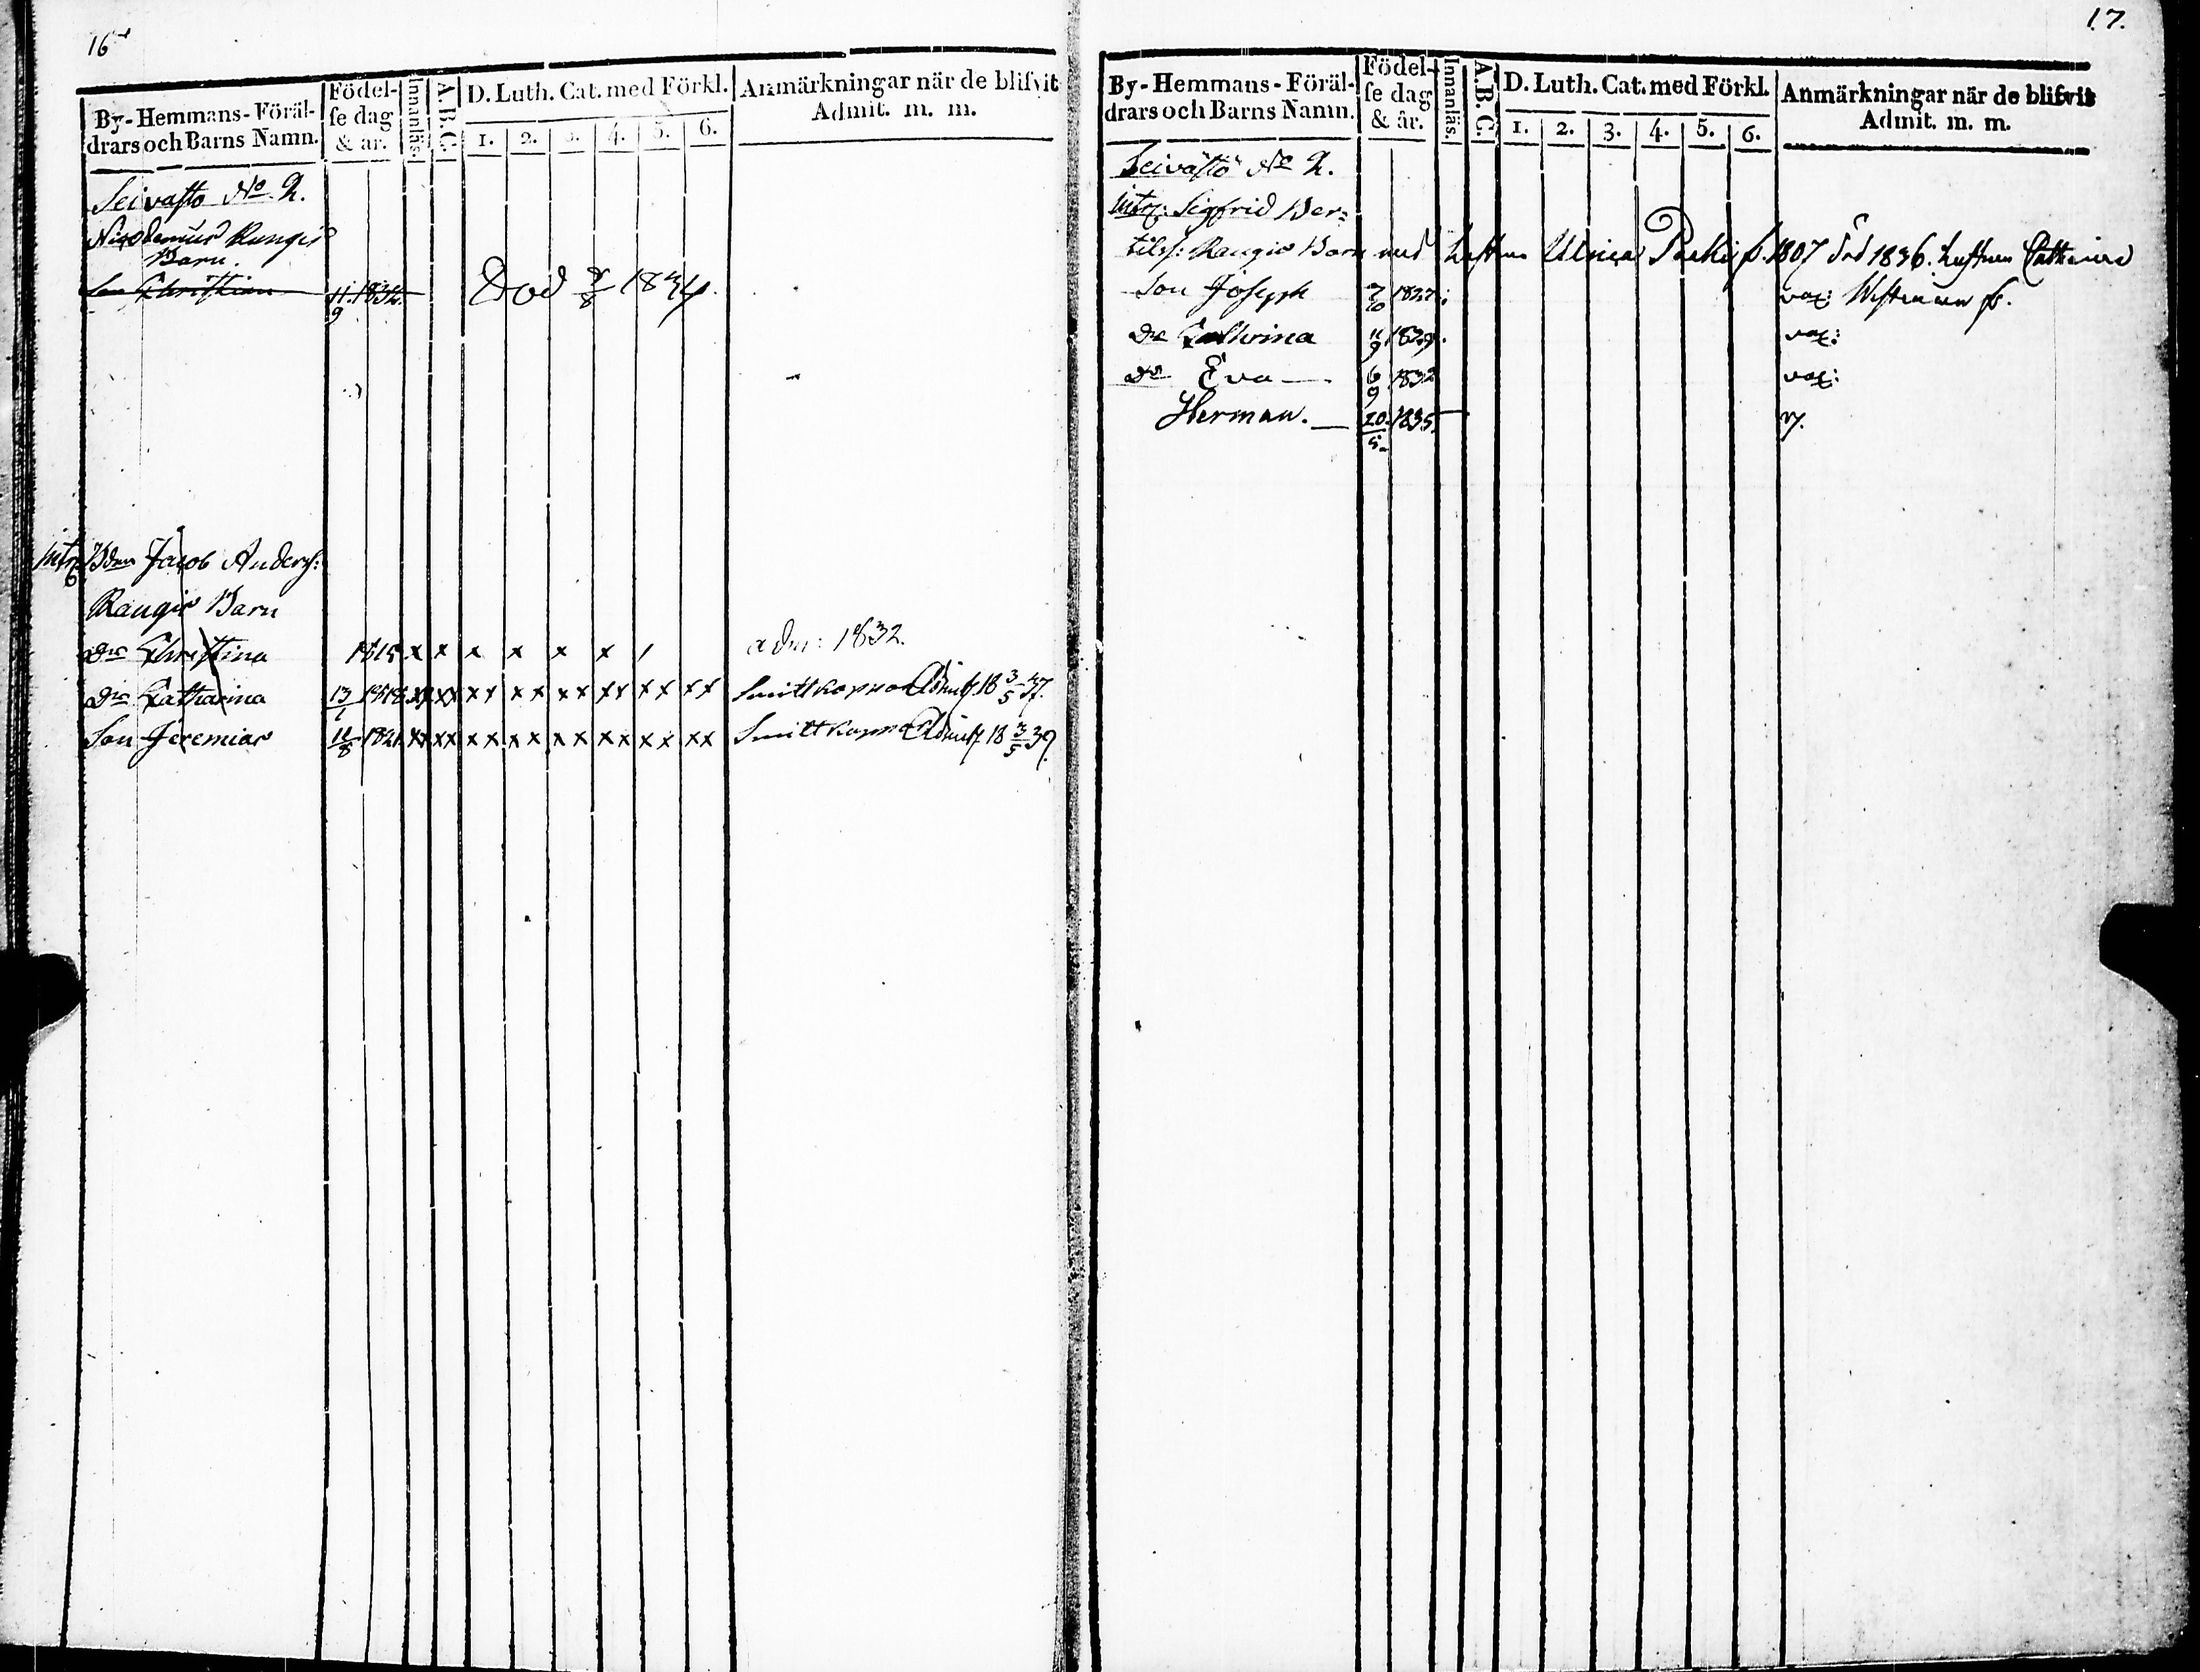 16
By-Hemmans-Föräl-
drars och Barns Namn.
Födel-
se dag
& år.
Innanläs.
A.B.C.
D. Luth. Cat. med Förkl.
1. 2. 3. 4. 5. 6.
Anmärkningar när de blifvit
Admit. m. m.
Seivasto No 2.
Nicodemus Raugis
Barn.
Son Christian 11/9 1832. Död 1834.
Intr. Bdn Jacob Anders:
Raugis Barn
Dr Christina 1815 x x x x x x / adm: 1832.
Dr Catharina 13/1 1818 xx xx xx xx xx xx xx xx Smittkoppor Admitt. 18 3/5 37.
Son Jeremias 11/8 1821 xx xx xx xx xx xx xx xx Smittkoppor Admitt. 18 3/5 39.
17.
By-Hemmans-Föräl-
drars och Barns Namn.
Födel-
se dag
& år.
Innanläs.
A.B.C.
D. Luth. Cat. med Förkl.
1. 2. 3. 4. 5. 6.
Anmärkningar när de blifvit
Admit. m. m.
Seivästö No 2.
Intr: Sigfrid Ber=
tils: Raugis Barn med hustrun Ulrica f. 1807 död 1836. hustrun Catharina
Son Joseph 7/10 1827. vax:
Dr Cathrina 11/9 1829. vax:
Dr Eva — 6/9 1832 vax:
Herman. — 20/5 1835. v.